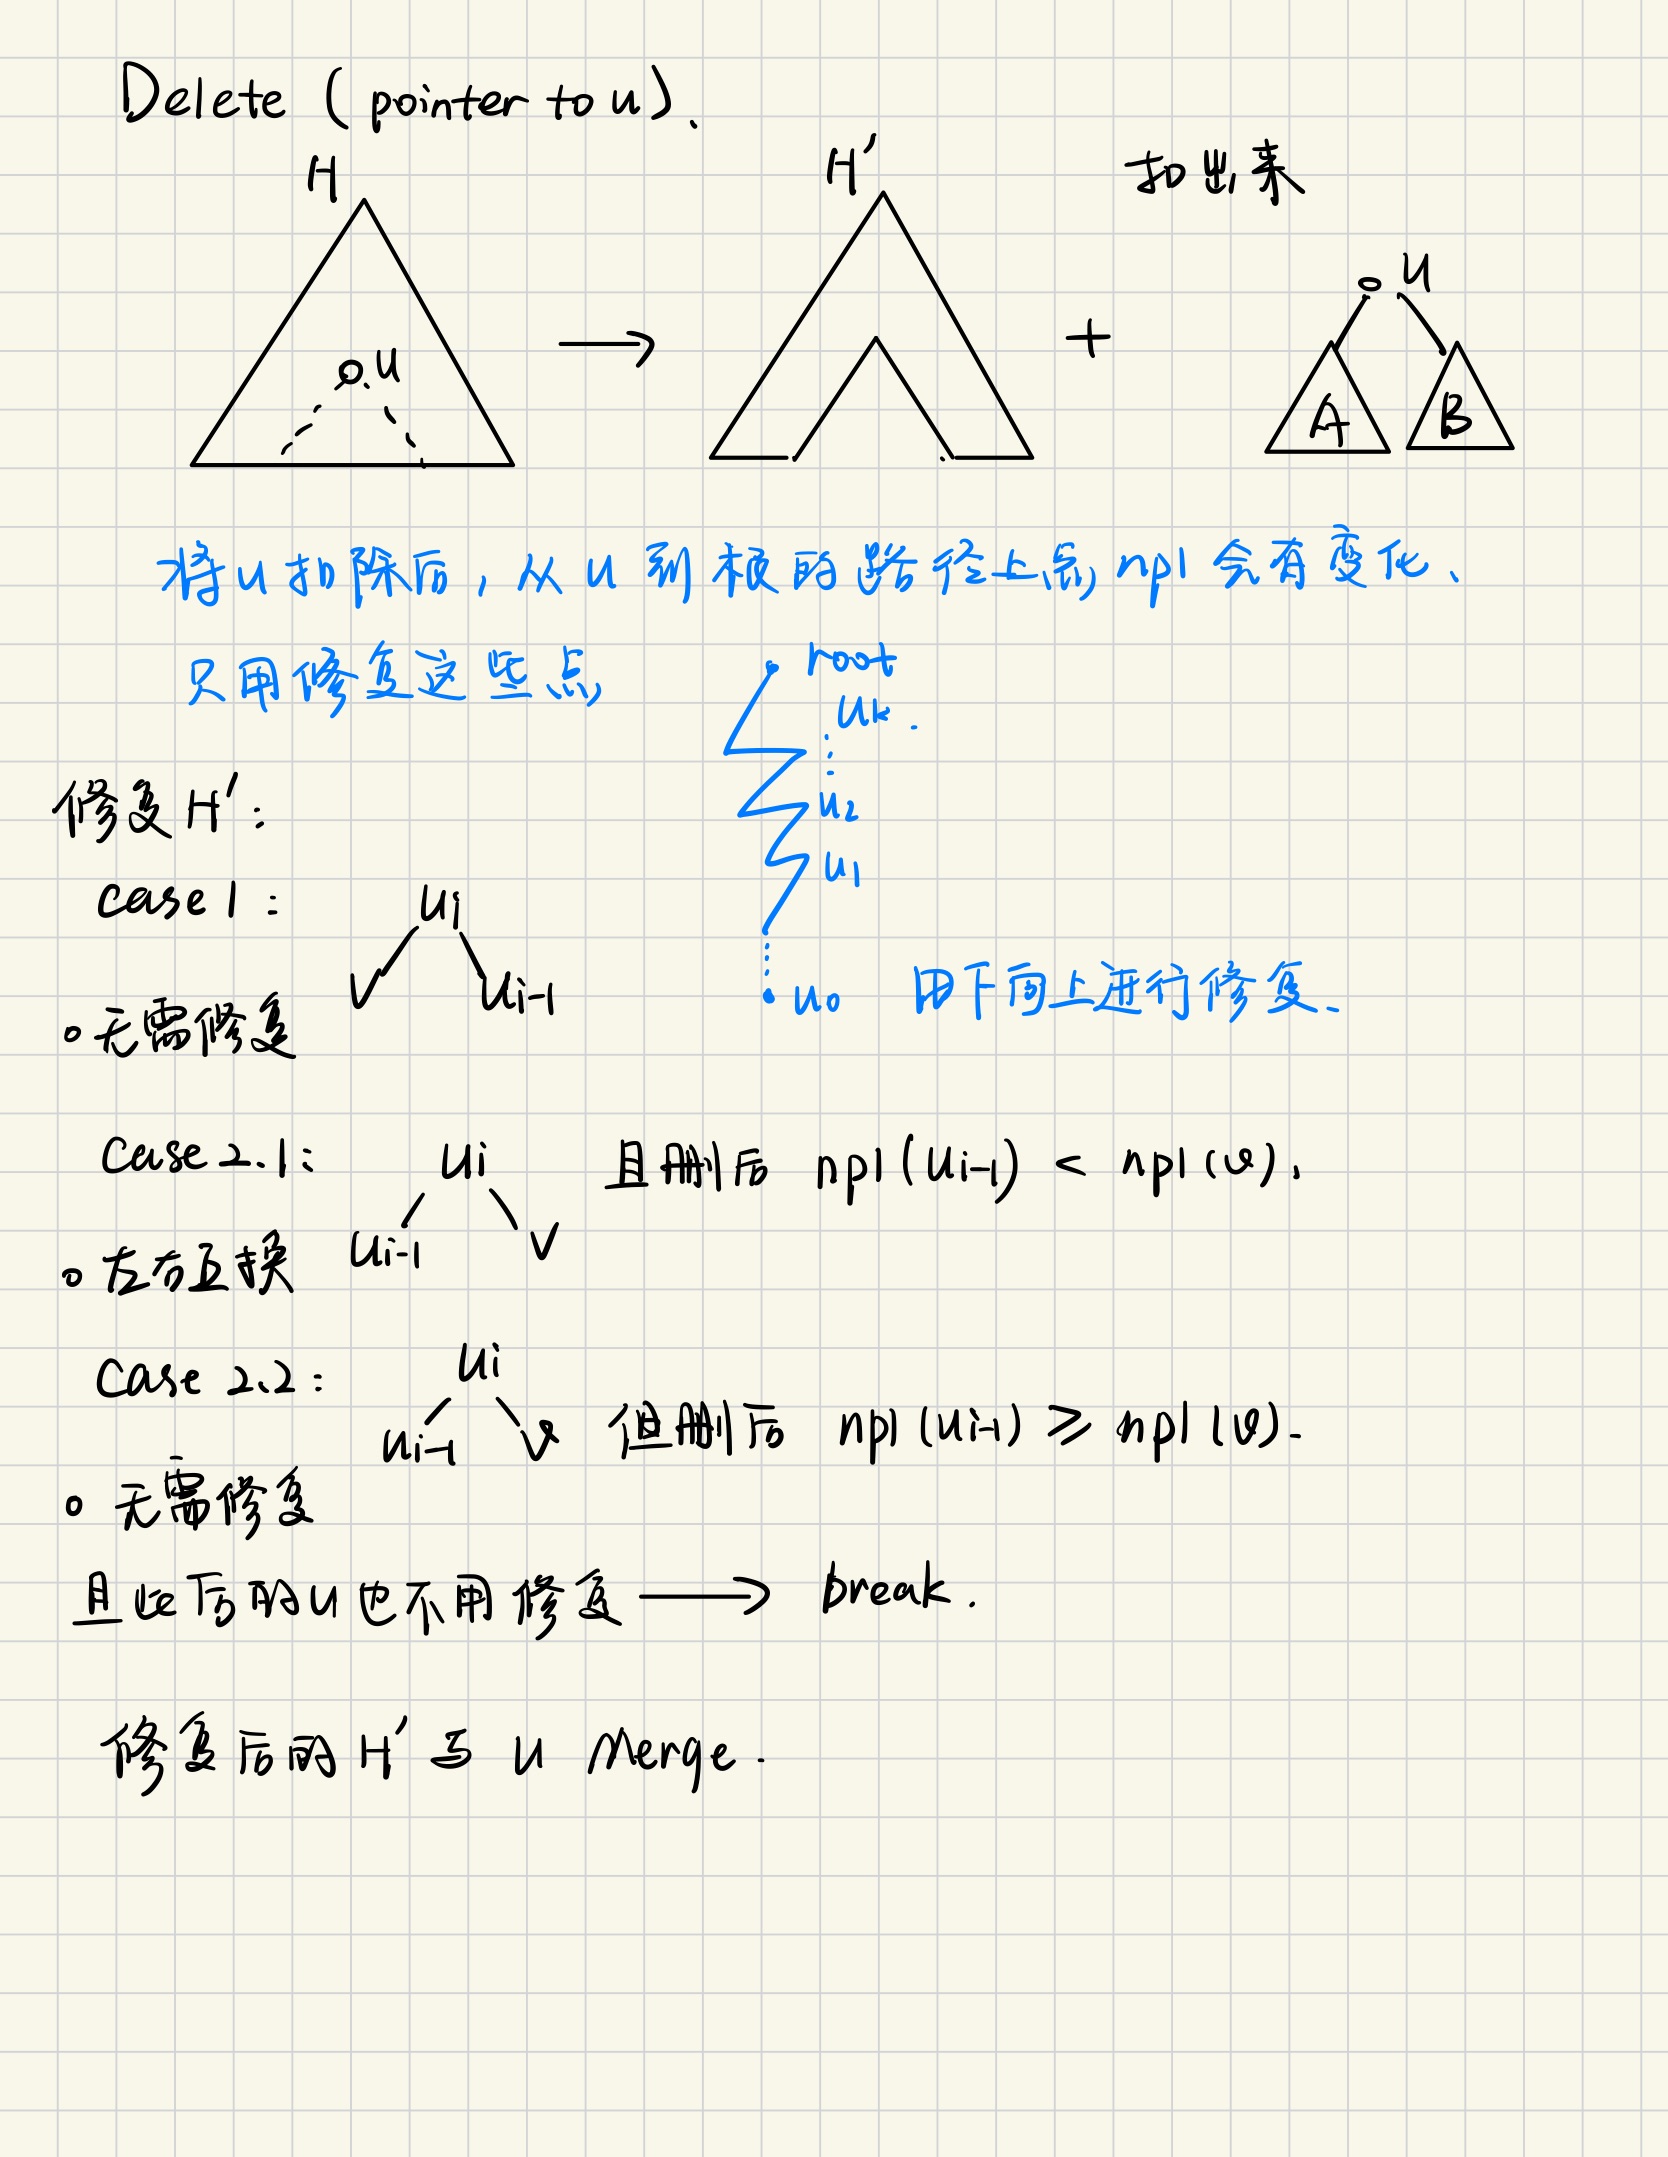 Delete (pointer to u).
H
H'
扣出来
u
u
+
A
B
将u扣除后,从u到根的路径上点npl会有变化.
只用修复这些点
root
uk.
u2
u1
u0
由下向上进行修复.
修复H':
case 1:
ui
v
ui-1
无需修复
case 2.1:
ui
且删后 npl(ui-1) < npl(v).
ui-1
v
左右互换
case 2.2:
ui
ui-1
v
但删后 npl(ui-1) ≥ npl(v).
无需修复
且此后的u也不用修复 → break.
修复后的H'与u Merge.